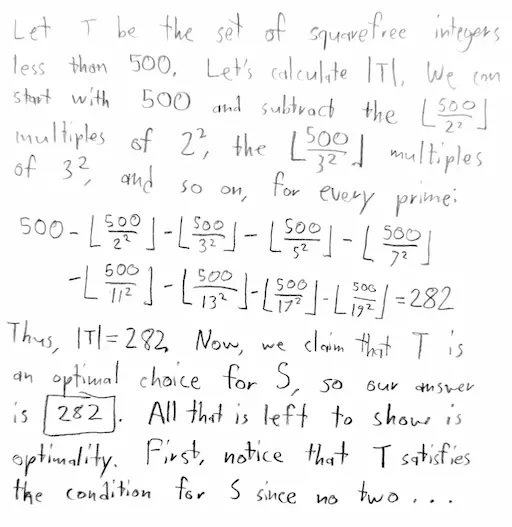 Let T be the set of squarefree integers
less than 500. Let's calculate |T|. We can
start with 500 and subtract the ⌊500/2²⌋
multiples of 2², the ⌊500/3²⌋ multiples
of 3², and so on, for every prime:
500 - ⌊500/2²⌋ - ⌊500/3²⌋ - ⌊500/5²⌋ - ⌊500/7²⌋
- ⌊500/11²⌋ - ⌊500/13²⌋ - ⌊500/17²⌋ - ⌊500/19²⌋ = 282
Thus, |T| = 282. Now, we claim that T is
an optimal choice for S, so our answer
is 282. All that is left to show is
optimality. First, notice that T satisfies
the condition for S since no two ...